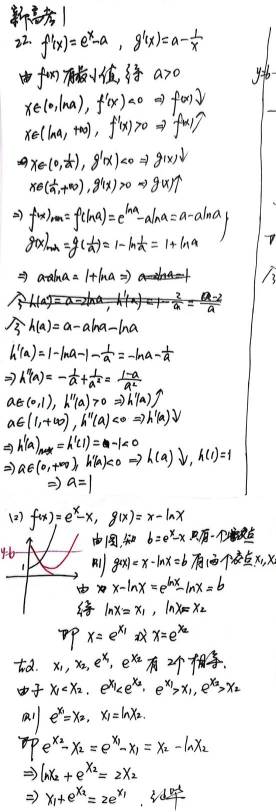 新高考1
22. f'(x)=e^x-a , g'(x)=a-1/x
由f(x)有最小值, 得 a>0
x∈(0,lna), f'(x)<0 ⇒ f(x)↓
x∈(lna, +∞), f'(x)>0 ⇒ f(x)↑
x∈(0,1/a), g'(x)<0 ⇒ g(x)↓
x∈(1/a,+∞), g'(x)>0 ⇒ g(x)↑
⇒ f(x)min=f(lna)=e^lna-alna=a-alna
g(x)min=g(1/a)=1-ln1/a=1+lna
⇒ a-alna=1+lna ⇒
令 h(a)=a-alna-lna
h'(a)=1-lna-1-1/a=-lna-1/a
⇒ h''(a)=-1/a+1/a²=(1-a)/a²
a∈(0,1), h''(a)>0 ⇒ h'(a)↑
a∈(1,+∞), h''(a)<0 ⇒ h'(a)↓
⇒ h'(a)max=h'(1)=-1<0
⇒ a∈(0,+∞), h'(a)<0 ⇒ h(a)↓, h(1)=1
⇒ a=1
(2) f(x)=e^x-x, g(x)=x-lnx
y=b
1
由图知 b=e^x-x 只有一个
则 g(x)=x-lnx=b 有两个交点x₁,x₂
由 x-lnx=e^lnx-lnx=b
得 lnx=x₁, lnx=x₂
即 x=e^x₁ 或 x=e^x₂
x₁, x₂, e^x₁, e^x₂ 有2个相等.
由于 x₁<x₂. e^x₁<e^x₂. e^x₁>x₁, e^x₂>x₂
则 e^x₁=x₂, x₁=lnx₂.
即 e^x₂-x₂=e^x₁-x₁=x₂-lnx₂
⇒ lnx₂+e^x₂=2x₂
⇒ x₁+e^x₂=2e^x₁ , 证毕